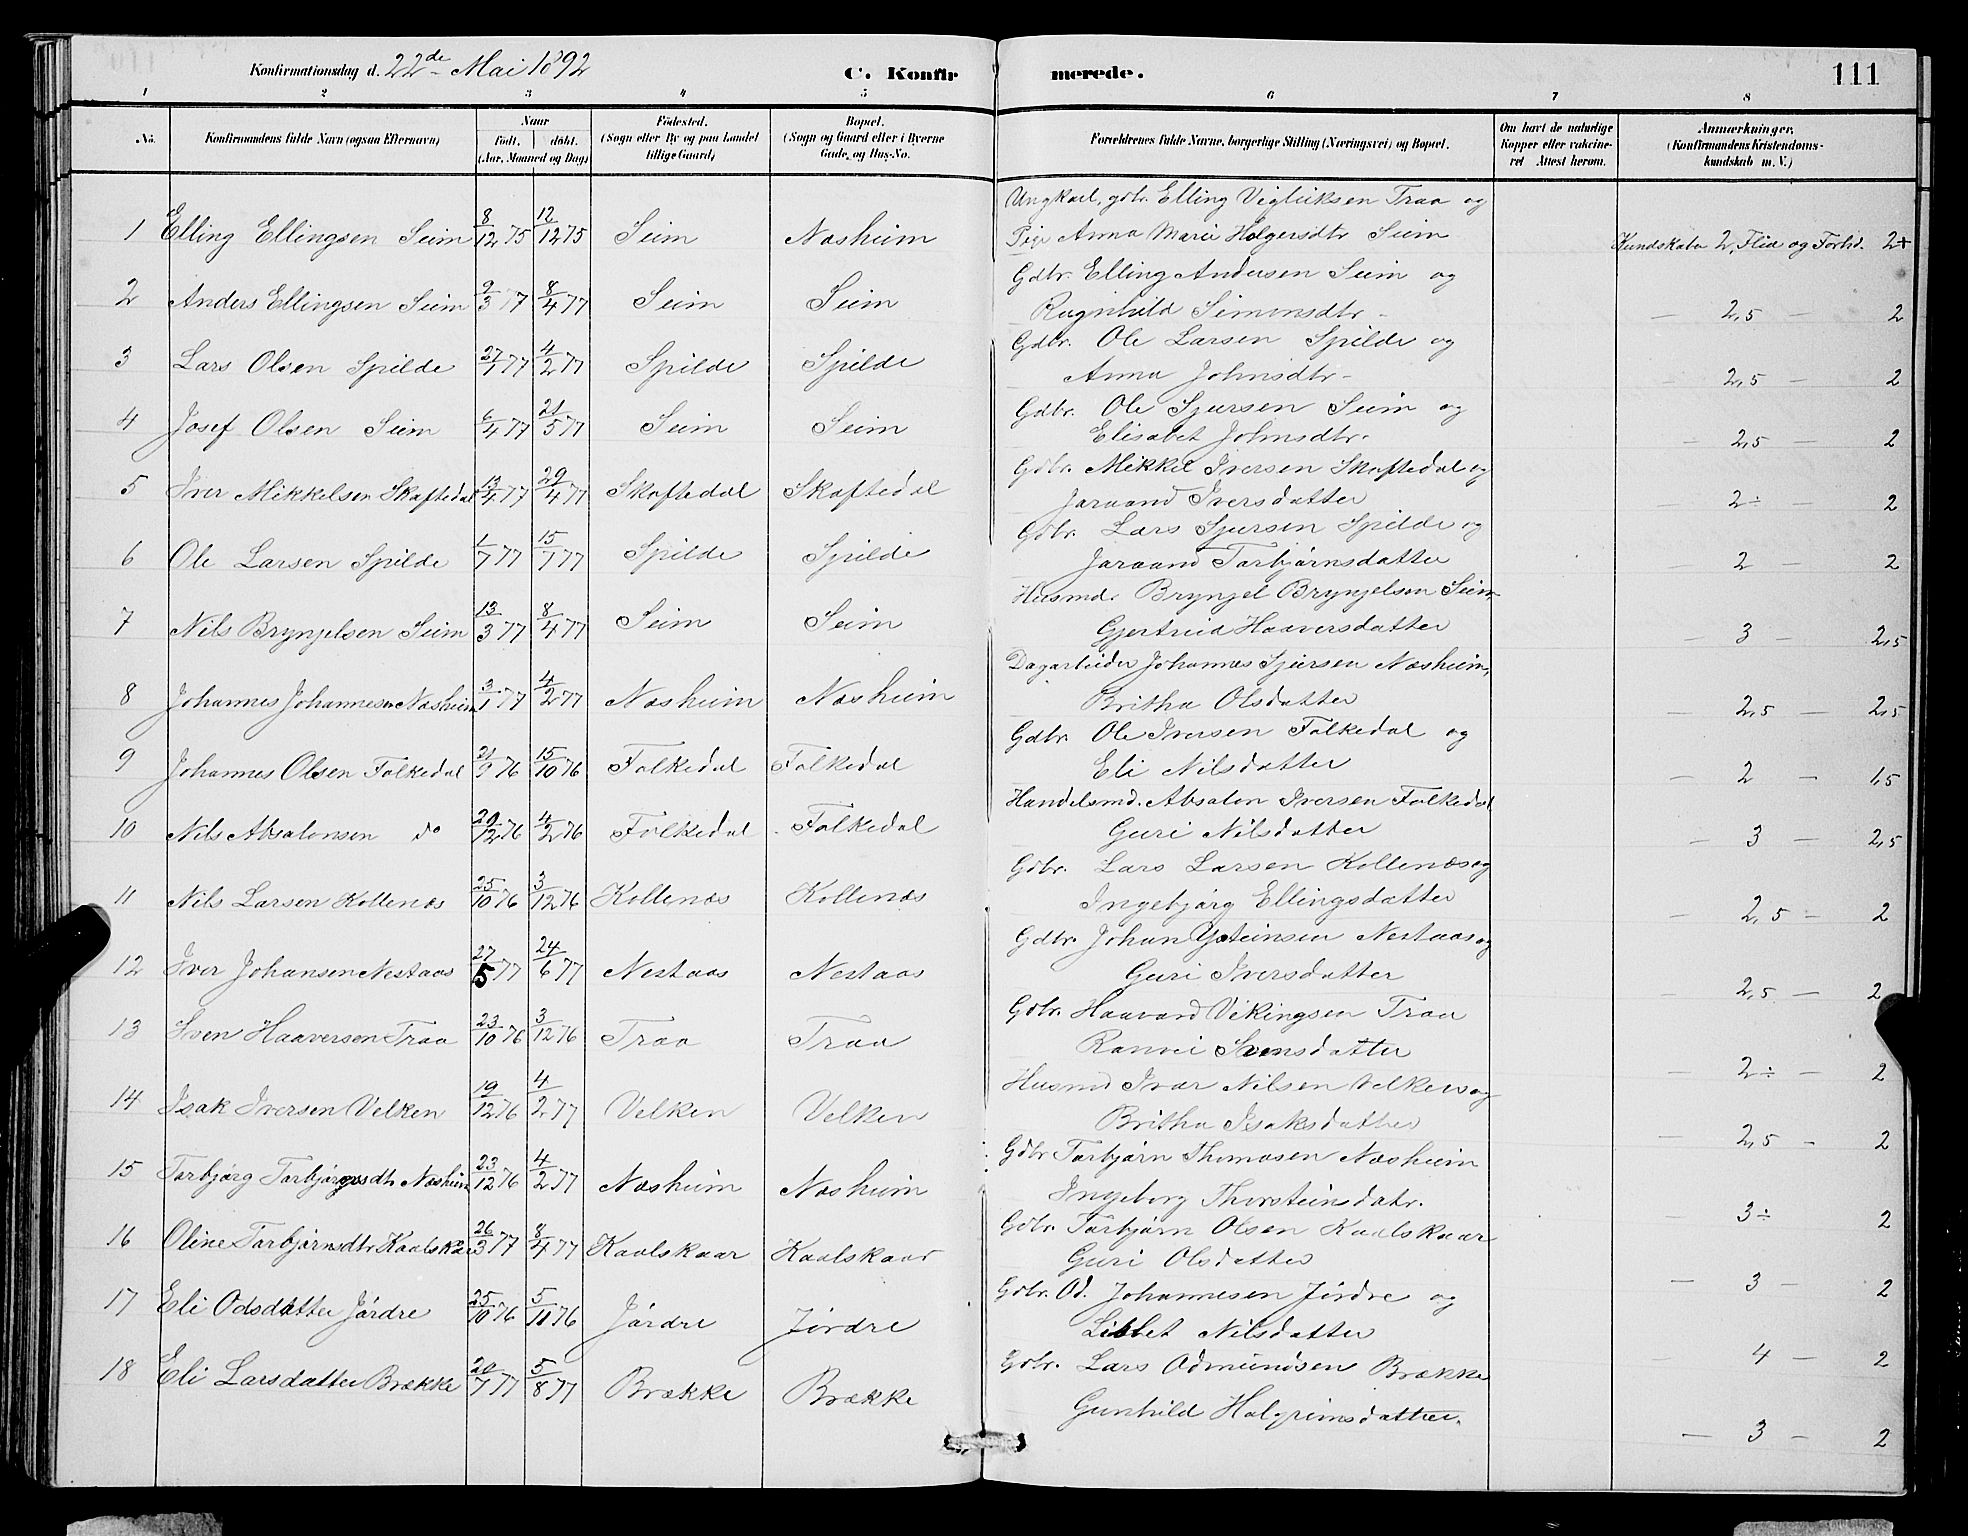 Konfirmationsdag d. 22de Mai 1892 C. Konfirmerede. 111
1 2 3 4 5 6 7 8
No. Konfirmandens fulde Navn (ogsaa Efternavn) Naar født, døbt. (Aar, Maaned og Dag) Fødested. (Sogn eller By og paa Landet tillige Gaard) Bopæl. (Sogn og Gaard eller i Byerne Gade og Hus-No. Forældrenes fulde Navne, borgerlige Stilling (Næringsvei) og Bopæl. Om havt de naturlige Kopper eller vaccineret Attest herom. Anmærkninger. (Konfirmandens Kristendomskundskab m. V.)
1 Elling Ellingsen Seim 8/12 75 12/12 75 Seim Næsheim Ungkarl, gdbr. Elling Vigleiksen Traa og
Pige Anna Marie Holgersdtr Seim Kundskaber 2, Flid og Forh. 2+
2 Anders Ellingsen Seim 9/3 77 8/4 77 Seim Seim Gdbr. Elling Andersen Seim og
Ragnhild Simonsdtr - — 2,5 — 2
3 Lars Olsen Spilde 27/1 77 4/2 77 Spilde Spilde Gdbr. Ole Larsen Spilde og
Anna Johnsdtr - — 2,5 — 2
4 Josef Olsen Seim 6/4 77 21/5 77 Seim Seim Gdbr. Ole Sjursen Seim og
Elisabet Johnsdtr. — 2,5 — 2
5 Iver Mikkelsen Skaftedal 13/4 77 29/4 77 Skaftedal Skaftedal Gdbr. Mikkel Iversen Skaftedal og
Jaraand Iversdatter — 2÷ — 2
6 Ole Larsen Spilde 1/7 77 15/7 77 Spilde Spilde Gdbr. Lars Sjursen Spilde og
Jaraand Torbjørnsdatter — 2 — 2
7 Nils Brynjelsen Seim 13/3 77 8/4 77 Seim Seim Husmd. Brynjel Brynjelsen Seim
Gjertrud Haaversdatter — 3 — 2,5
8 Johannes Johannesen Næsheim 3/1 77 4/2 77 Næsheim Næsheim Dagarbeider Johannes Sjursen Næsheim,
Britha Olsdatter — 2,5 — 2,5
9 Johannes Olsen Folkedal 21/9 76 15/10 76 Folkedal Folkedal Gdbr. Ole Iversen Folkedal og
Eli Nilsdatter — 2 — 1,5
10 Nils Absalonsen do 20/12 76 4/2 76 Folkedal Folkedal Handelsmd. Absalon Iversen Folkedal
Guri Nilsdatter — 3 — 2,5
11 Nils Larsen Kollenæs 25/10 76 3/12 76 Kollenæs Kollenæs Gdbr. Lars Larsen Kollenæs og
Ingebjørg Ellingsdatter — 2,5 — 2
12 Iver Johansen Nestaas 27/5 77 24/6 77 Nestaas Nestaas Gdbr. Johan Ysteinsen Nestaas og
Guri Iversdatter — 2,5 — 2
13 Sven Haaversen Traa 23/10 76 3/12 76 Traa Traa Gdbr. Haavard Vikingsen Traa
Ranvei Svensdatter — 2÷ — 2
14 Isak Iversen Velken 19/12 76 4/2 77 Velken Velken Husmd Ivar Nilsen Velken og
Britha Isaksdatter — 2,5 — 2
15 Torbjørg Torbjørnsdtr Næsheim 23/12 76 4/2 77 Næsheim Næsheim Gdbr Torbjørn Thomasen Næsheim
Ingeborg Thorsteinsdatr. — 3÷ 2
16 Oline Torbjørnsdtr Kaalskaar 26/3 77 8/4 77 Kaalskaar Kaalskaar Gdbr. Torbjørn Olsen Kaalskaar
Guri Olsdatter — 3 — 2
17 Eli Odsdatter Jørdre 25/10 76 5/11 76 Jørdre Jørdre Gdbr. Od. Johannesen Jørdre og
Lisbet Nilsdatter — 4 — 2
18 Eli Larsdatter Brække 20/7 77 5/8 77 Brække Brække Gdbr. Lars Odmundsen Brække
Gunhild Halgrimsdatter. — 3 — 2